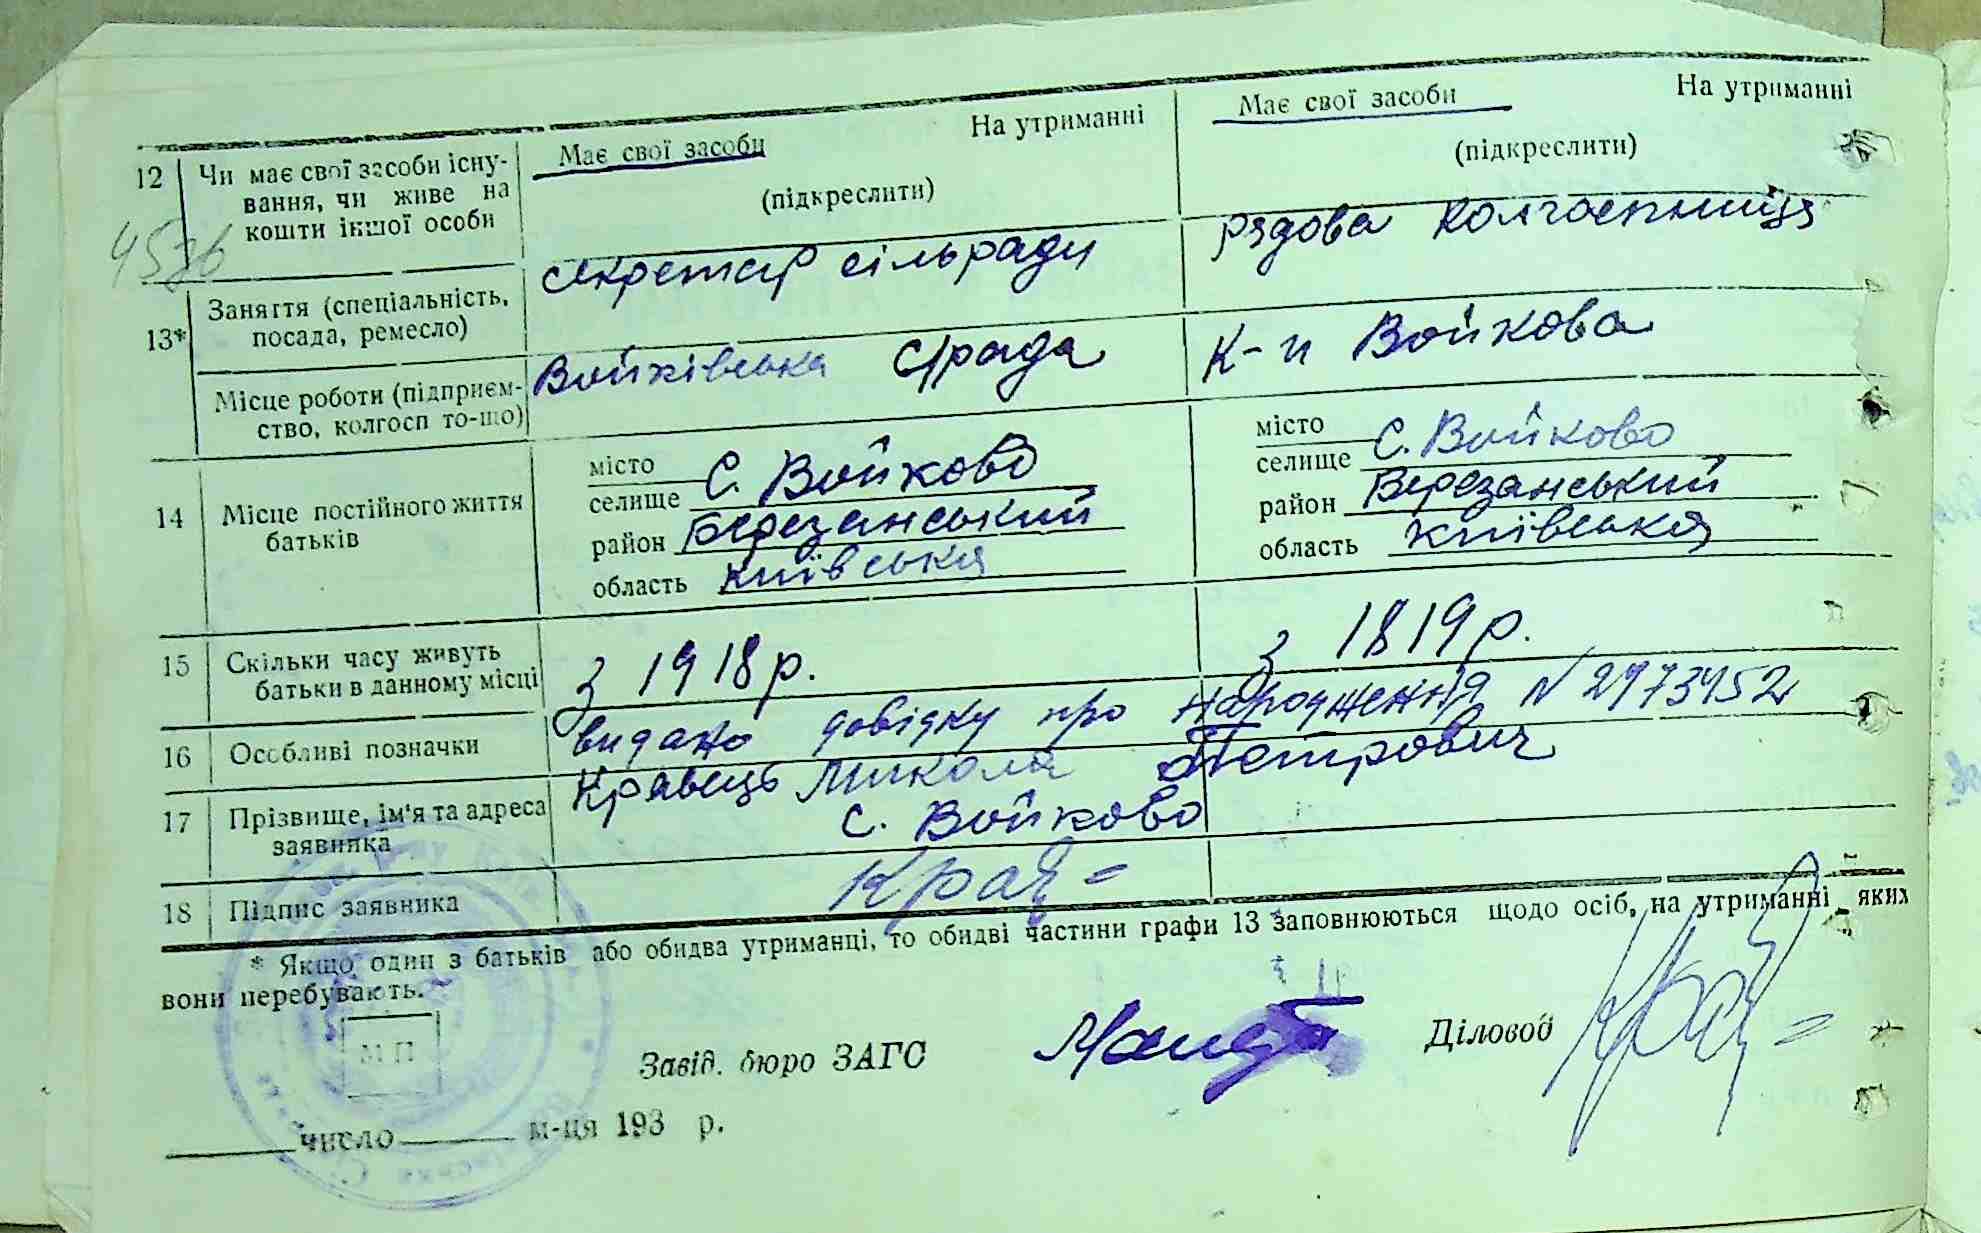 12 Чи має свої засоби існу- Має свої засоби На утриманні Має свої засоби На утриманні
вання, чи живе на (підкреслити) (підкреслити)
кошти іншої особи
13* Заняття (спеціальність, секретар сільради рядова колгоспниця
посада, ремесло)
Місце роботи (підприєм- Войківська с/рада К-п Войкова
ство, колгосп то-що)
14 Місце постійного життя
батьків
місто
селище С. Войково
район Березанський
область київська
місто
селище С. Войково
район Березанський
область київська
15 Скільки часу живуть з 1918 р. з 1819 р.
батьки в данному місці
16 Особливі позначки видано довідку про народження N 2973452
17 Прізвище, ім'я та адреса Кравець Микола Петрович
заявника с. Войково
18 Підпис заявника
* Якщо один з батьків або обидва утриманці, то обидві частини графи 13 заповнюються щодо осіб, на утриманні яких
вони перебувають.
М П
Завід. бюро ЗАГС Діловод
число м-ця 193 р.